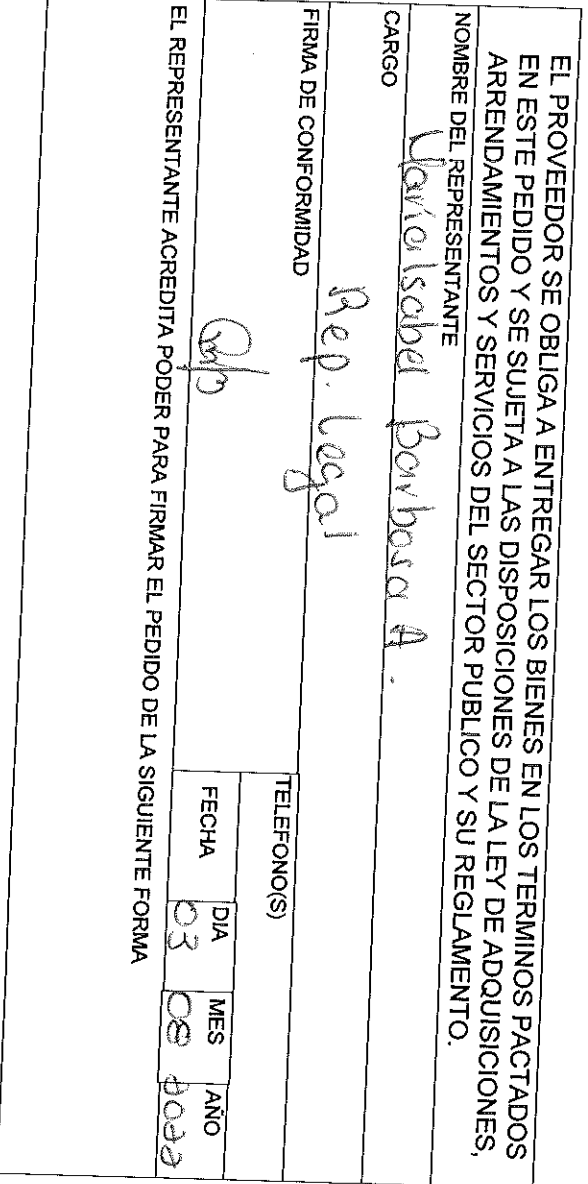 EL PROVEEDOR SE OBLIGA A ENTREGAR LOS BIENES EN LOS TERMINOS PACTADOS
EN ESTE PEDIDO Y SE SUJETA A LAS DISPOSICIONES DE LA LEY DE ADQUISICIONES,
ARRENDAMIENTOS Y SERVICIOS DEL SECTOR PUBLICO Y SU REGLAMENTO.
NOMBRE DEL REPRESENTANTE
Maria Isabel Barbosa A.
CARGO
Rep. Legal
FIRMA DE CONFORMIDAD
TELEFONO(S)
FECHA
DIA MES AÑO
03 08 2022
EL REPRESENTANTE ACREDITA PODER PARA FIRMAR EL PEDIDO DE LA SIGUIENTE FORMA